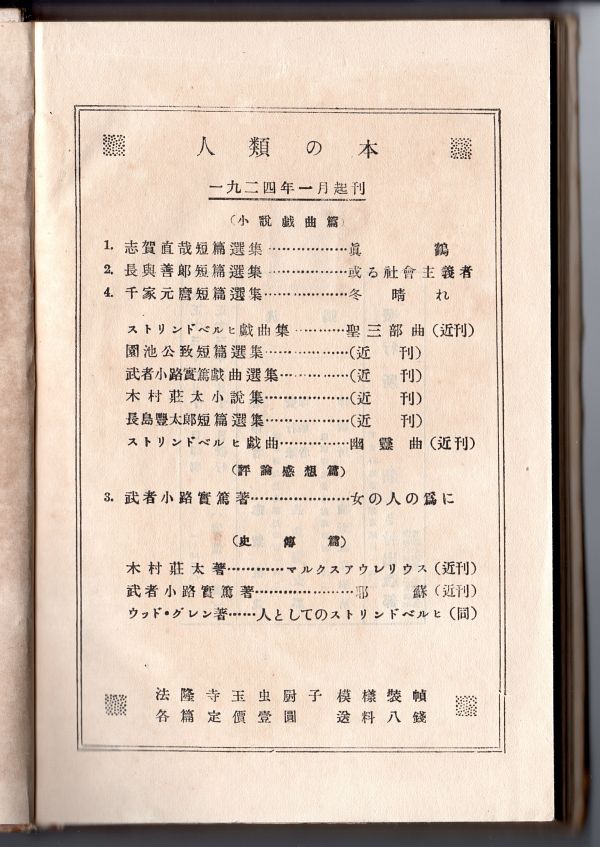 人類の本
一九二四年一月起刊
（小說戯曲篇）
1. 志賀直哉短篇選集……………眞鶴
2. 長與善郎短篇選集……………或る社會主義者
4. 千家元麿短篇選集……………冬晴れ
ストリンドベルヒ戯曲集………聖三部曲（近刊）
園池公致短篇選集……………（近刊）
武者小路實篤戯曲選集…………（近刊）
木村莊太小說集………………（近刊）
長島豐太郎短篇選集……………（近刊）
ストリンドベルヒ戯曲…………幽靈曲（近刊）
（評論感想篇）
3. 武者小路實篤著………………女の人の爲に
（史傳篇）
木村莊太著…………マルクスアウレリウス（近刊）
武者小路實篤著…………………耶蘇（近刊）
ウッド・グレン著……人としてのストリンドベルヒ（同）
法隆寺玉虫厨子模樣裝幀
各篇定價壹圓 送料八錢